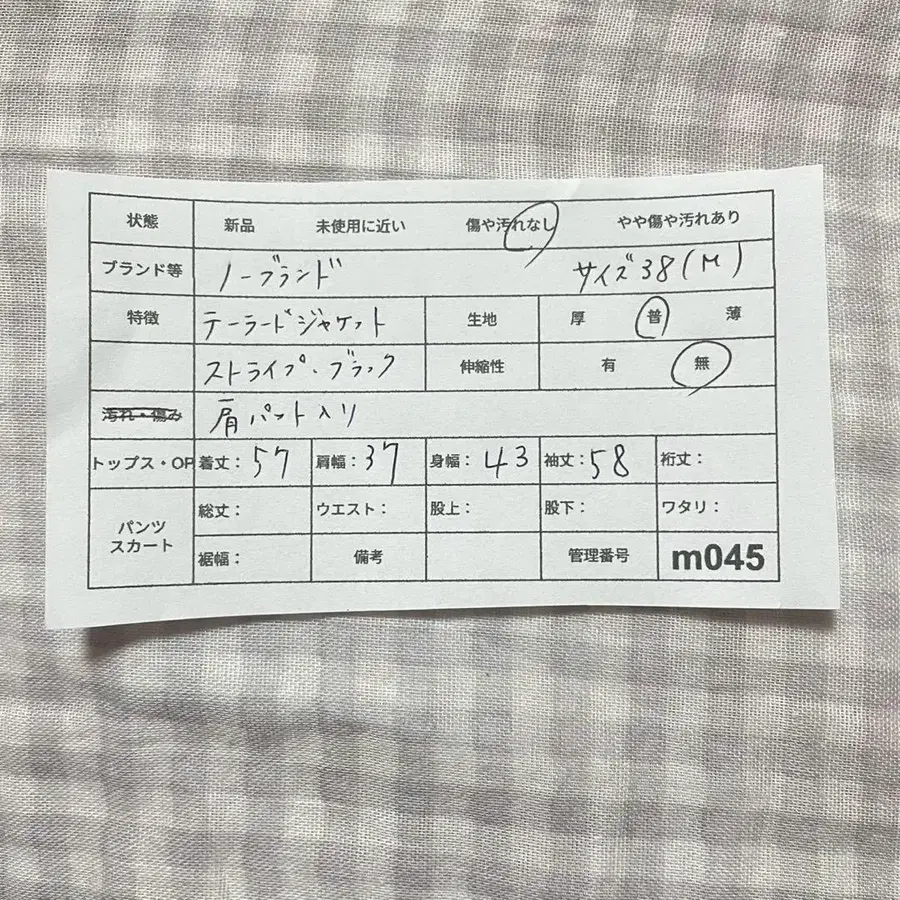 状態 新品 未使用に近い 傷や汚れなし やや傷や汚れあり
ブランド等 ノーブランド サイズ38(M)
特徴 テーラードジャケット 生地 厚 普 薄
ストライプ・ブラック 伸縮性 有 無
汚れ・傷み 肩パット入り
トップス・OP 着丈：57 肩幅：37 身幅：43 袖丈：58 裄丈：
パンツ 総丈： ウエスト： 股上： 股下： ワタリ：
スカート 裾幅： 備考 管理番号 m045